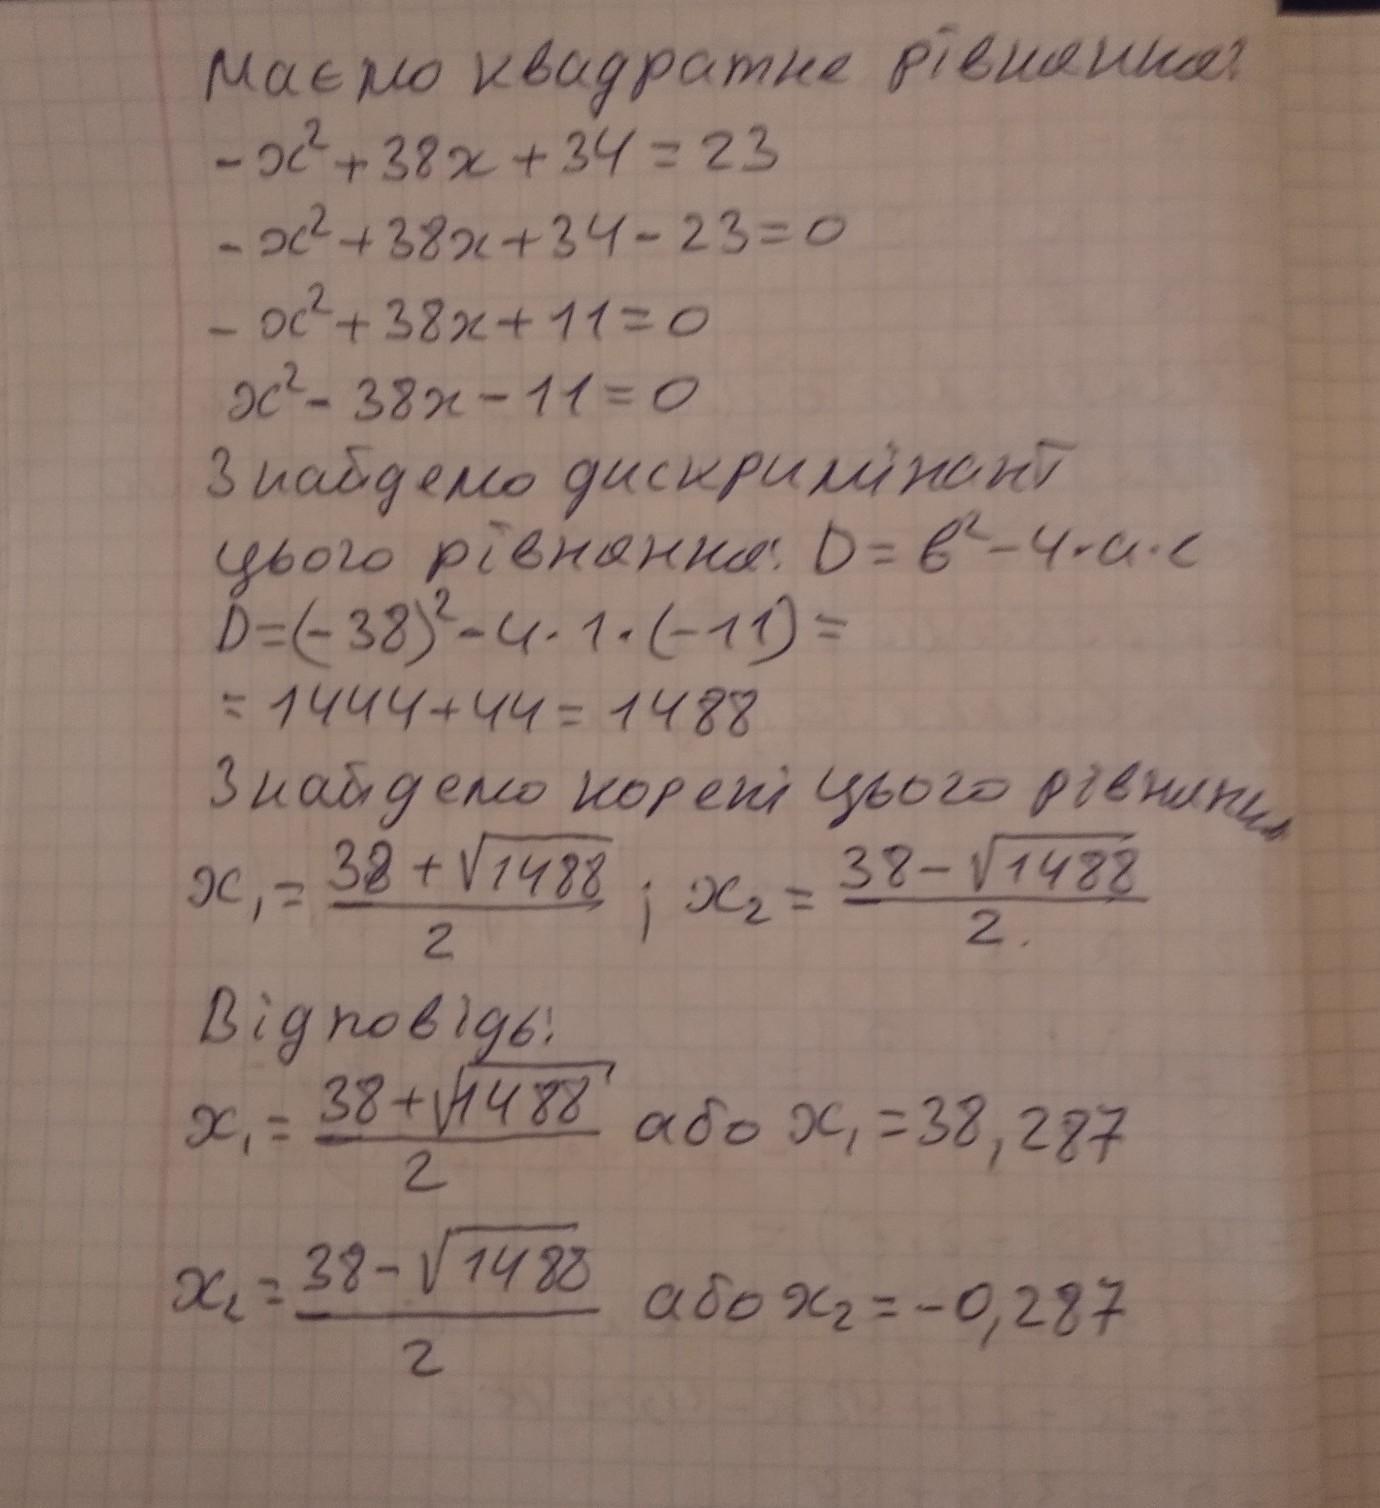 Маємо квадратне рівняння:
-x²+38x+34=23
-x²+38x+34-23=0
-x²+38x+11=0
x²-38x-11=0
Знайдемо дискримінант
цього рівняння: D=b²-4·a·c
D=(-38)²-4·1·(-11)=
=1444+44=1488
Знайдемо корені цього рівняння
x₁=(38+√1488)/2; x₂=(38-√1488)/2.
Відповідь:
x₁=(38+√1488)/2 або x₁=38,287
x₂=(38-√1488)/2 або x₂=-0,287